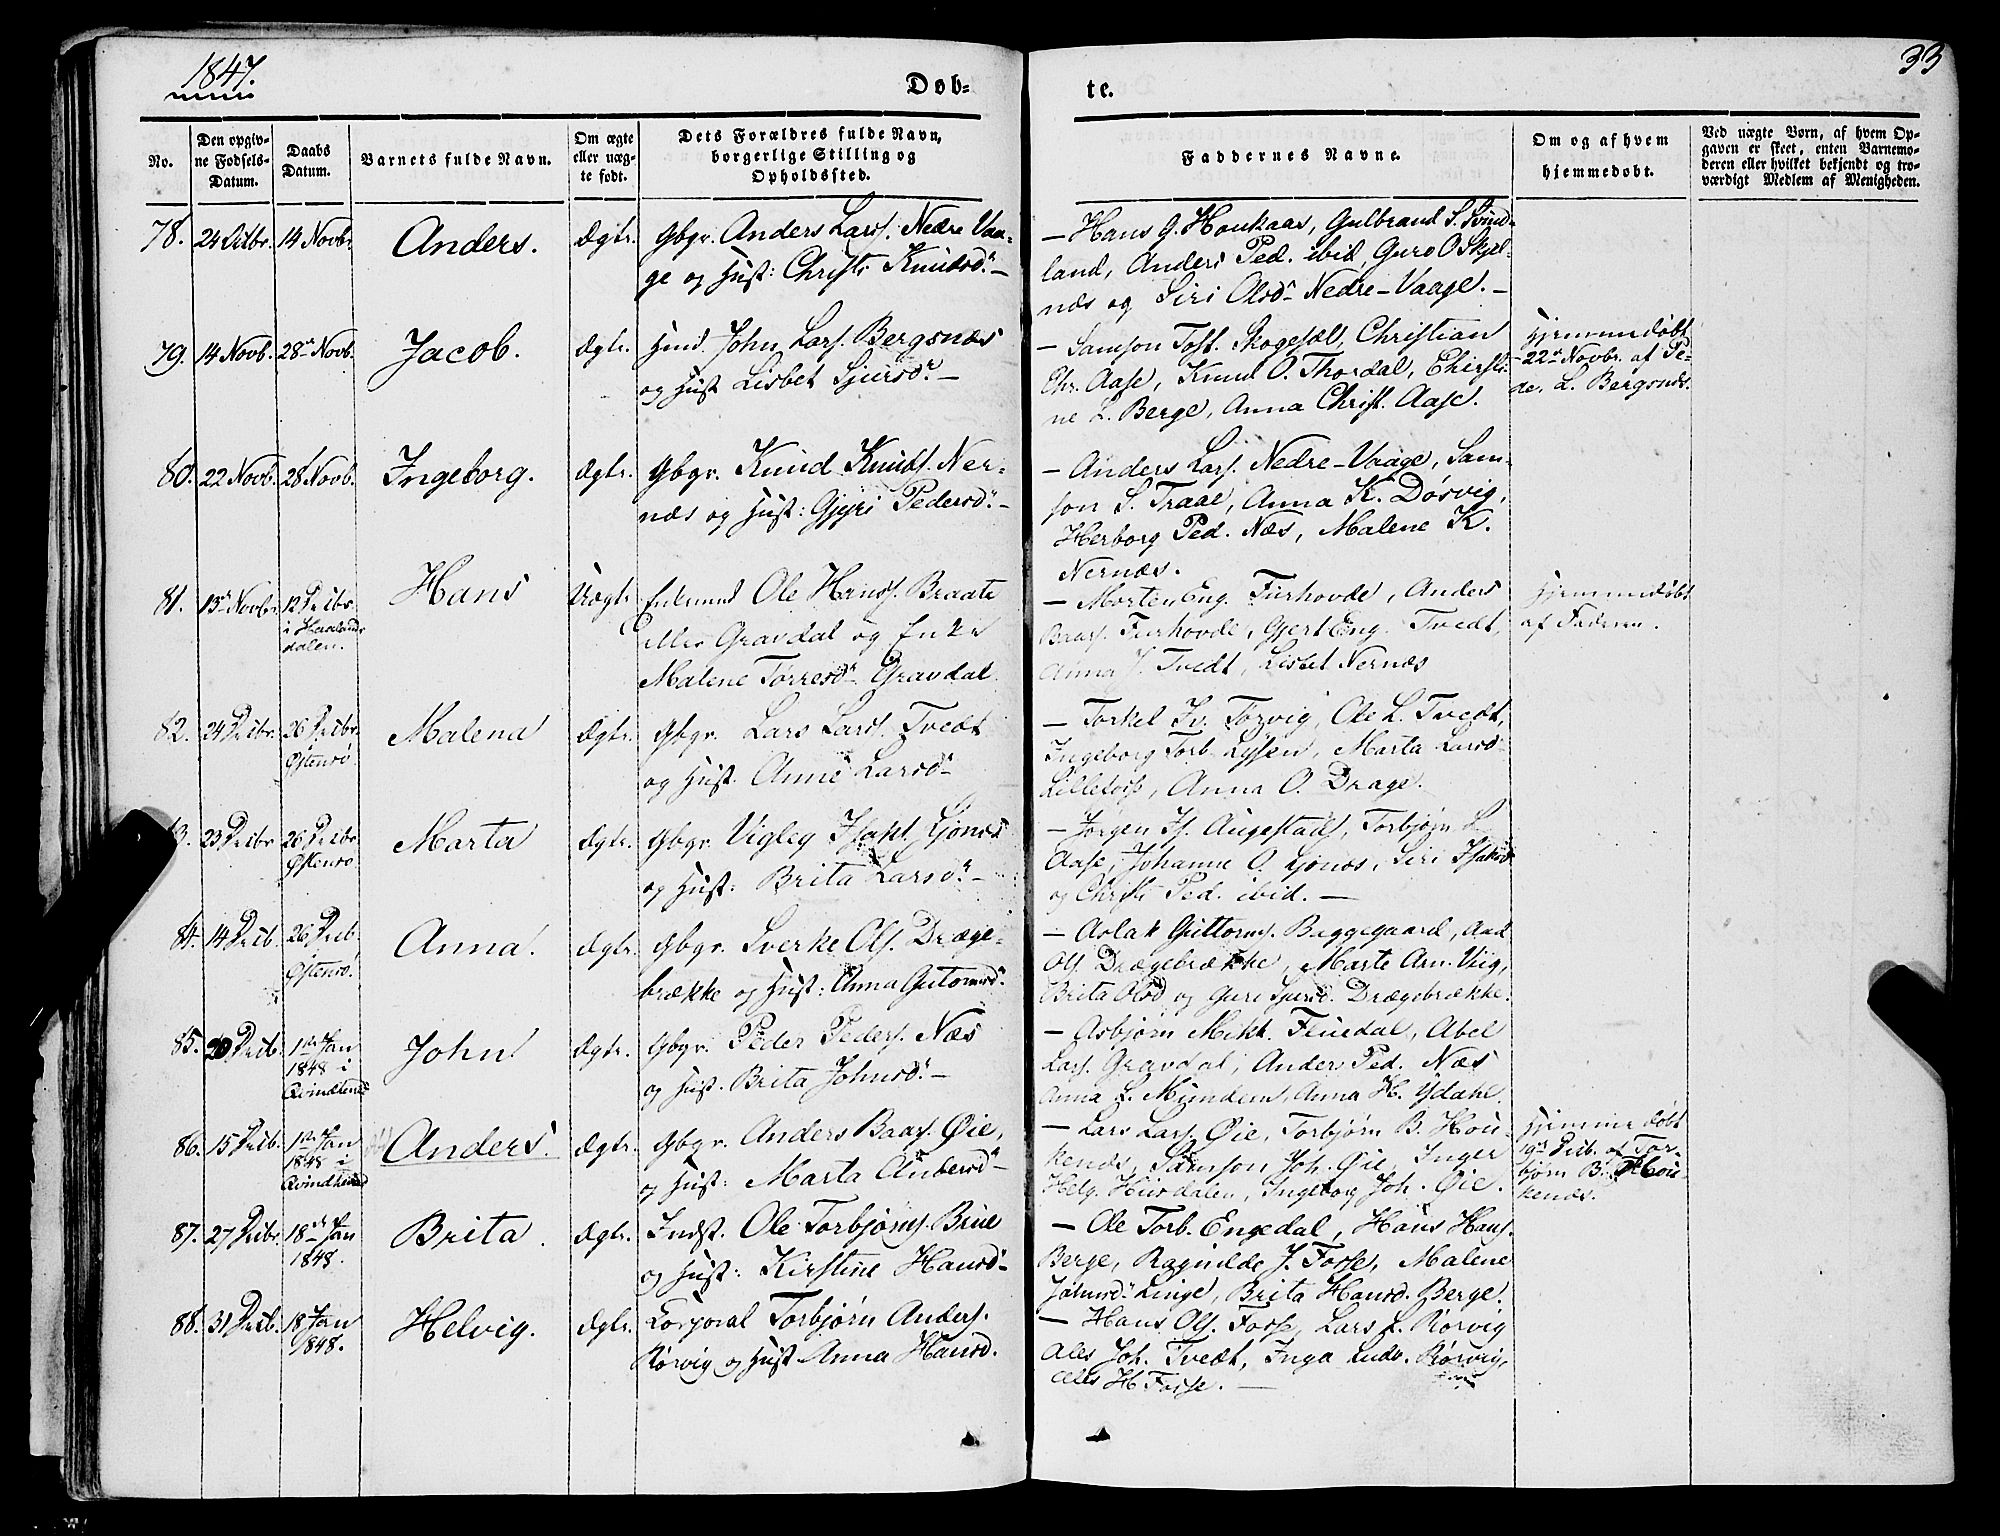 1847.
33
Døb-
te.
No.
Den opgiv-
ne Fødsels-
Datum.
Daabs
Datum.
Barnets fulde Navn.
Om ægte
eller uæg-
te født.
Dets Forældres fulde Navn,
borgerlige Stilling og
Opholdssted.
Faddernes Navne.
Om og af hvem
hjemmedøbt.
Ved uægte Børn, af hvem Op-
gaven er skeet, enten Barnemo-
deren eller hvilket bekjendt og tro-
værdigt Medlem af Menigheden.
78. 24 Octbr. 14 Novbr. Anders. Ægte. Gbgr. Anders Lars. Nedre Vaa-
ge og Hust: Christi Knudsdr. —
— Hans G. Houkaas, Gulbrand S.
land, Anders Ped. ibid, Guro O Skjel-
næs og Siri Olsdr Nedre-Vaage. —
79. 14 Novb. 28de Novb. Jacob. Ægte. Huud. John Lars. Bergsnæs
og Hust Lisbet Sjursdr. —
— Samson Tost. Skogesæl, Christian
Chr. Aase, Knud O. Thordal, Christi-
ne L. Berge, Anna Christ. Aase.
Hjemmedøbt
22de Novbr. af Pe-
der L. Bergsnæs.
80. 22 Novb. 28 Novb. Ingeborg. Ægte. Gbgr. Knud Knuds. Ner-
næs og Hust: Gjøri Pedersdr. —
— Anders Lars. Nedre-Vaage, Sam-
son S. Traae, Anna K. Døsvig,
Herborg Ped. Næs, Malene K.
Nernæs.
81. 13de Novbr. 12 Decbr. Hans Uægte Enkemand Ole Hanss. Braate
i Haalands
dalen.
eller Gravdal og Enke
Malene Tørresdr Gravdal.
— Morten Eng. Furhovde, Anders
Baars. Furhovde, Gjert Eng. Tvedt,
Anna J. Tvedt, Lisbet Nernæs
Hjemmedøbt
af Faderen.
82. 24 Decbr. 26 Decbr. Malena Ægte. Gbgr. Lars Lars. Tvedt
Østensø.
og Hust. Anne Larsdr
— Torkel Iv. Tørvig, Ole L. Tvedt,
Ingeborg Torb. Lysen, Marta Larsd
Lilletois, Anna O. Drage.
3. 23 Decbr 26 Decbr Marta Ægte. Gbgr. Vigleg Isak. Ljonæs
Østensø
og Hust: Brita Larsdr. —
— Jørgen Is. Augestad, Torbjørn L
Aase, Johanne O. Ljonæs, Siri Isaksd
og Christi Ped. ibid. —
84. 14 Decb. 26 Decb. Anna. Ægte. Gbgr. Sverke Ols. Dræge-
Østensø.
brække og Hust: Anna Gutormsdr.
— Aslak Guttorms. Byggegaard, Aad
Ols. Drægebrække, Marte Arn. Viig,
Brita Olsd og Guri Sjursd. Drægebrække.
85. 20 Decb. 1ste Jan John Ægte. Gbgr. Peder Peders. Næs
1848 i
Qvindherred
og Hust. Brita Johnsdr. —
— Asbjørn Mikk. Fluedal, Abel
Lars. Gravdal, Anders Ped. Næs
Anna L. Mundem, Anna H. Ydahl.
86. 15 Decb. 1ste Jan Anders. Ægte. Gbgr. Anders Baars. Øie,
1848 i
Qvindherred
og Hust: Marta Andersdr —
— Lars Lars. Øie, Torbjørn B. Hou-
kenæs, Samson Joh. Øie, Inger
Helg. Huusdalen, Ingeborg Joh. Øie.
Hjemmedøbt
19de Decb. af Tor-
bjørn B. Hou-
kenæs.
87. 27 Decbr. 18de Jan Brita. Ægte. Indst. Ole Torbjørns. Brue
1848.
og Hust: Kirstine Hansdr —
— Ole Torb. Engedal, Hans Hans.
Berge, Ragnilde J. Fosse, Malene
Johnsdr Linge, Brita Hansd. Berge.
88. 31 Decb. 18 Jan Helvig. Ægte. Corporal Torbjørn Anders.
1848.
Rørvig og Hust Anna Hansd.
— Hans Ols. Fosse, Lars L. Rørvig
Ales Joh. Tvedt, Inga Ludv. Rørvig,
Ales H Fosse. —